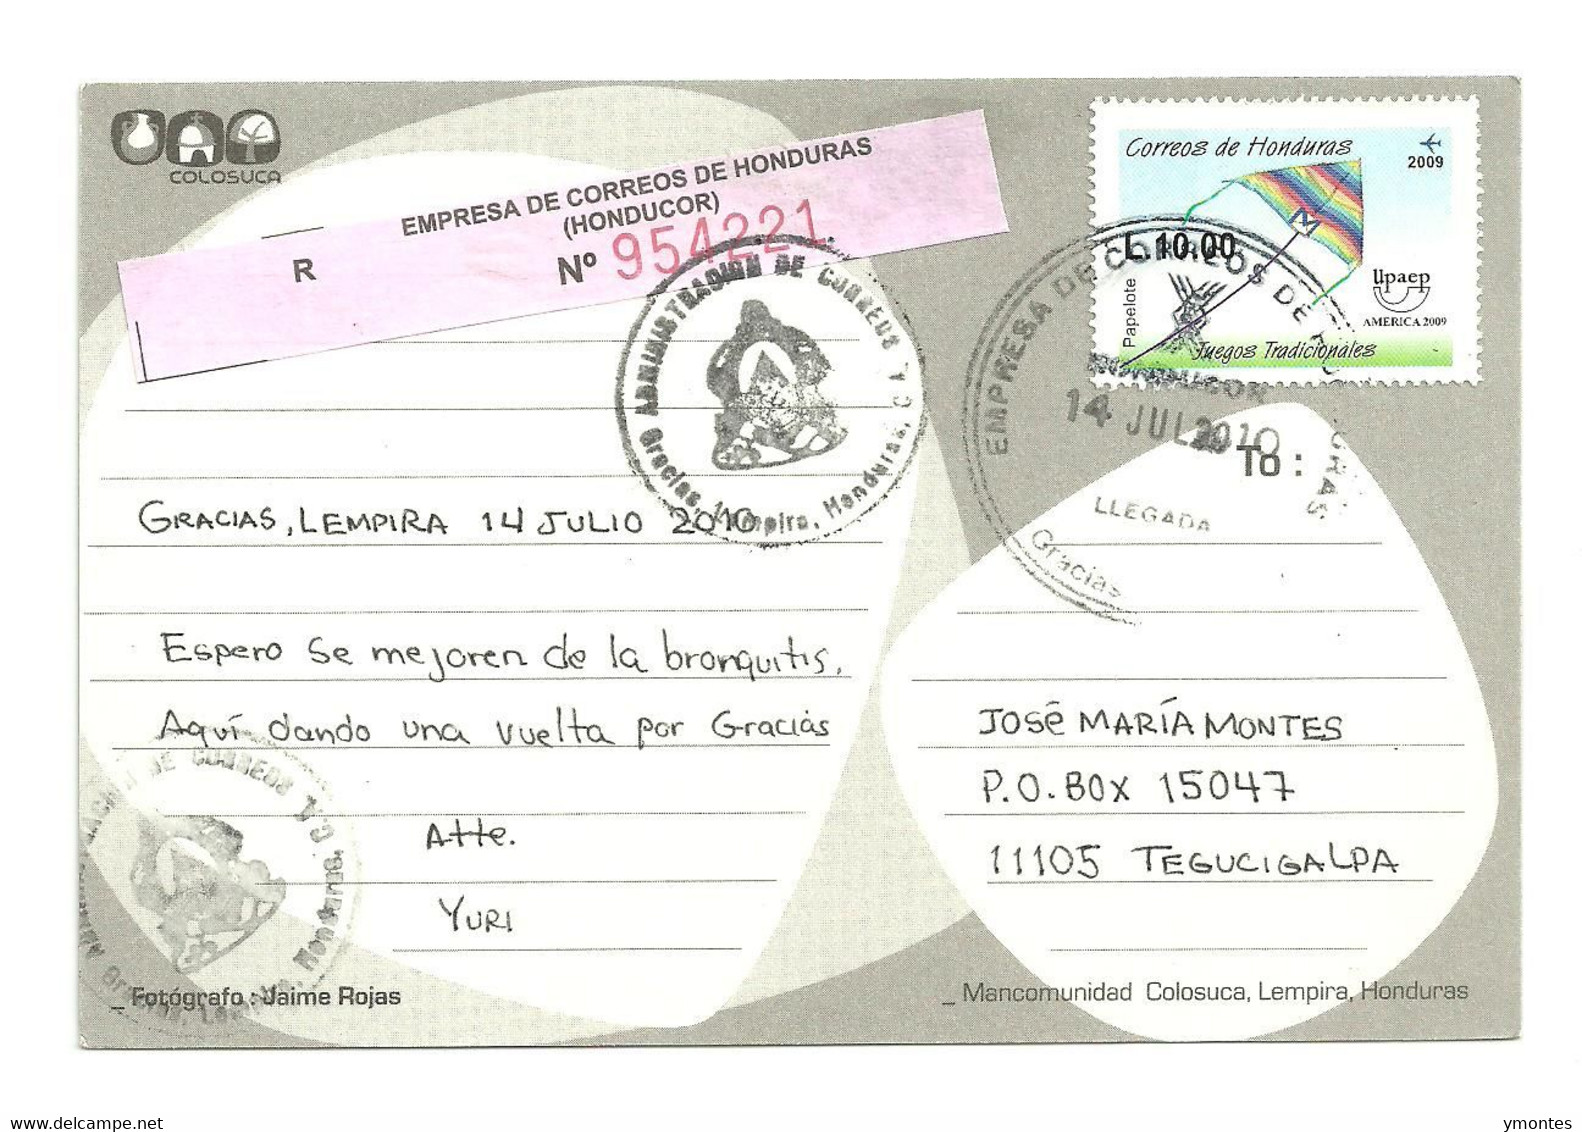 COLOSUCA
EMPRESA DE CORREOS DE HONDURAS
(HONDUCOR)
R
Nº 954221
Correos de Honduras
2009
L.10.00
Papelote
Upaep
AMERICA 2009
Juegos Tradicionales
ADMINISTRACION DE CORREOS Y C.A.
Gracias, Lempira, Honduras,
EMPRESA DE CORREOS DE HONDURAS
HONDUCOR
14 JUL 2010
LLEGADA
Gracias
To :
GRACIAS, LEMPIRA 14 JULIO 2010
Espero se mejoren de la bronquitis.
Aquí dando una vuelta por Gracias
Atte.
YURI
JOSÉ MARÍA MONTES
P.O. BOX 15047
11105 TEGUCIGALPA
DE CORREOS Y C.A.
_ Fotógrafo : Jaime Rojas
_ Mancomunidad Colosuca, Lempira, Honduras
delcampe.net
ymontes